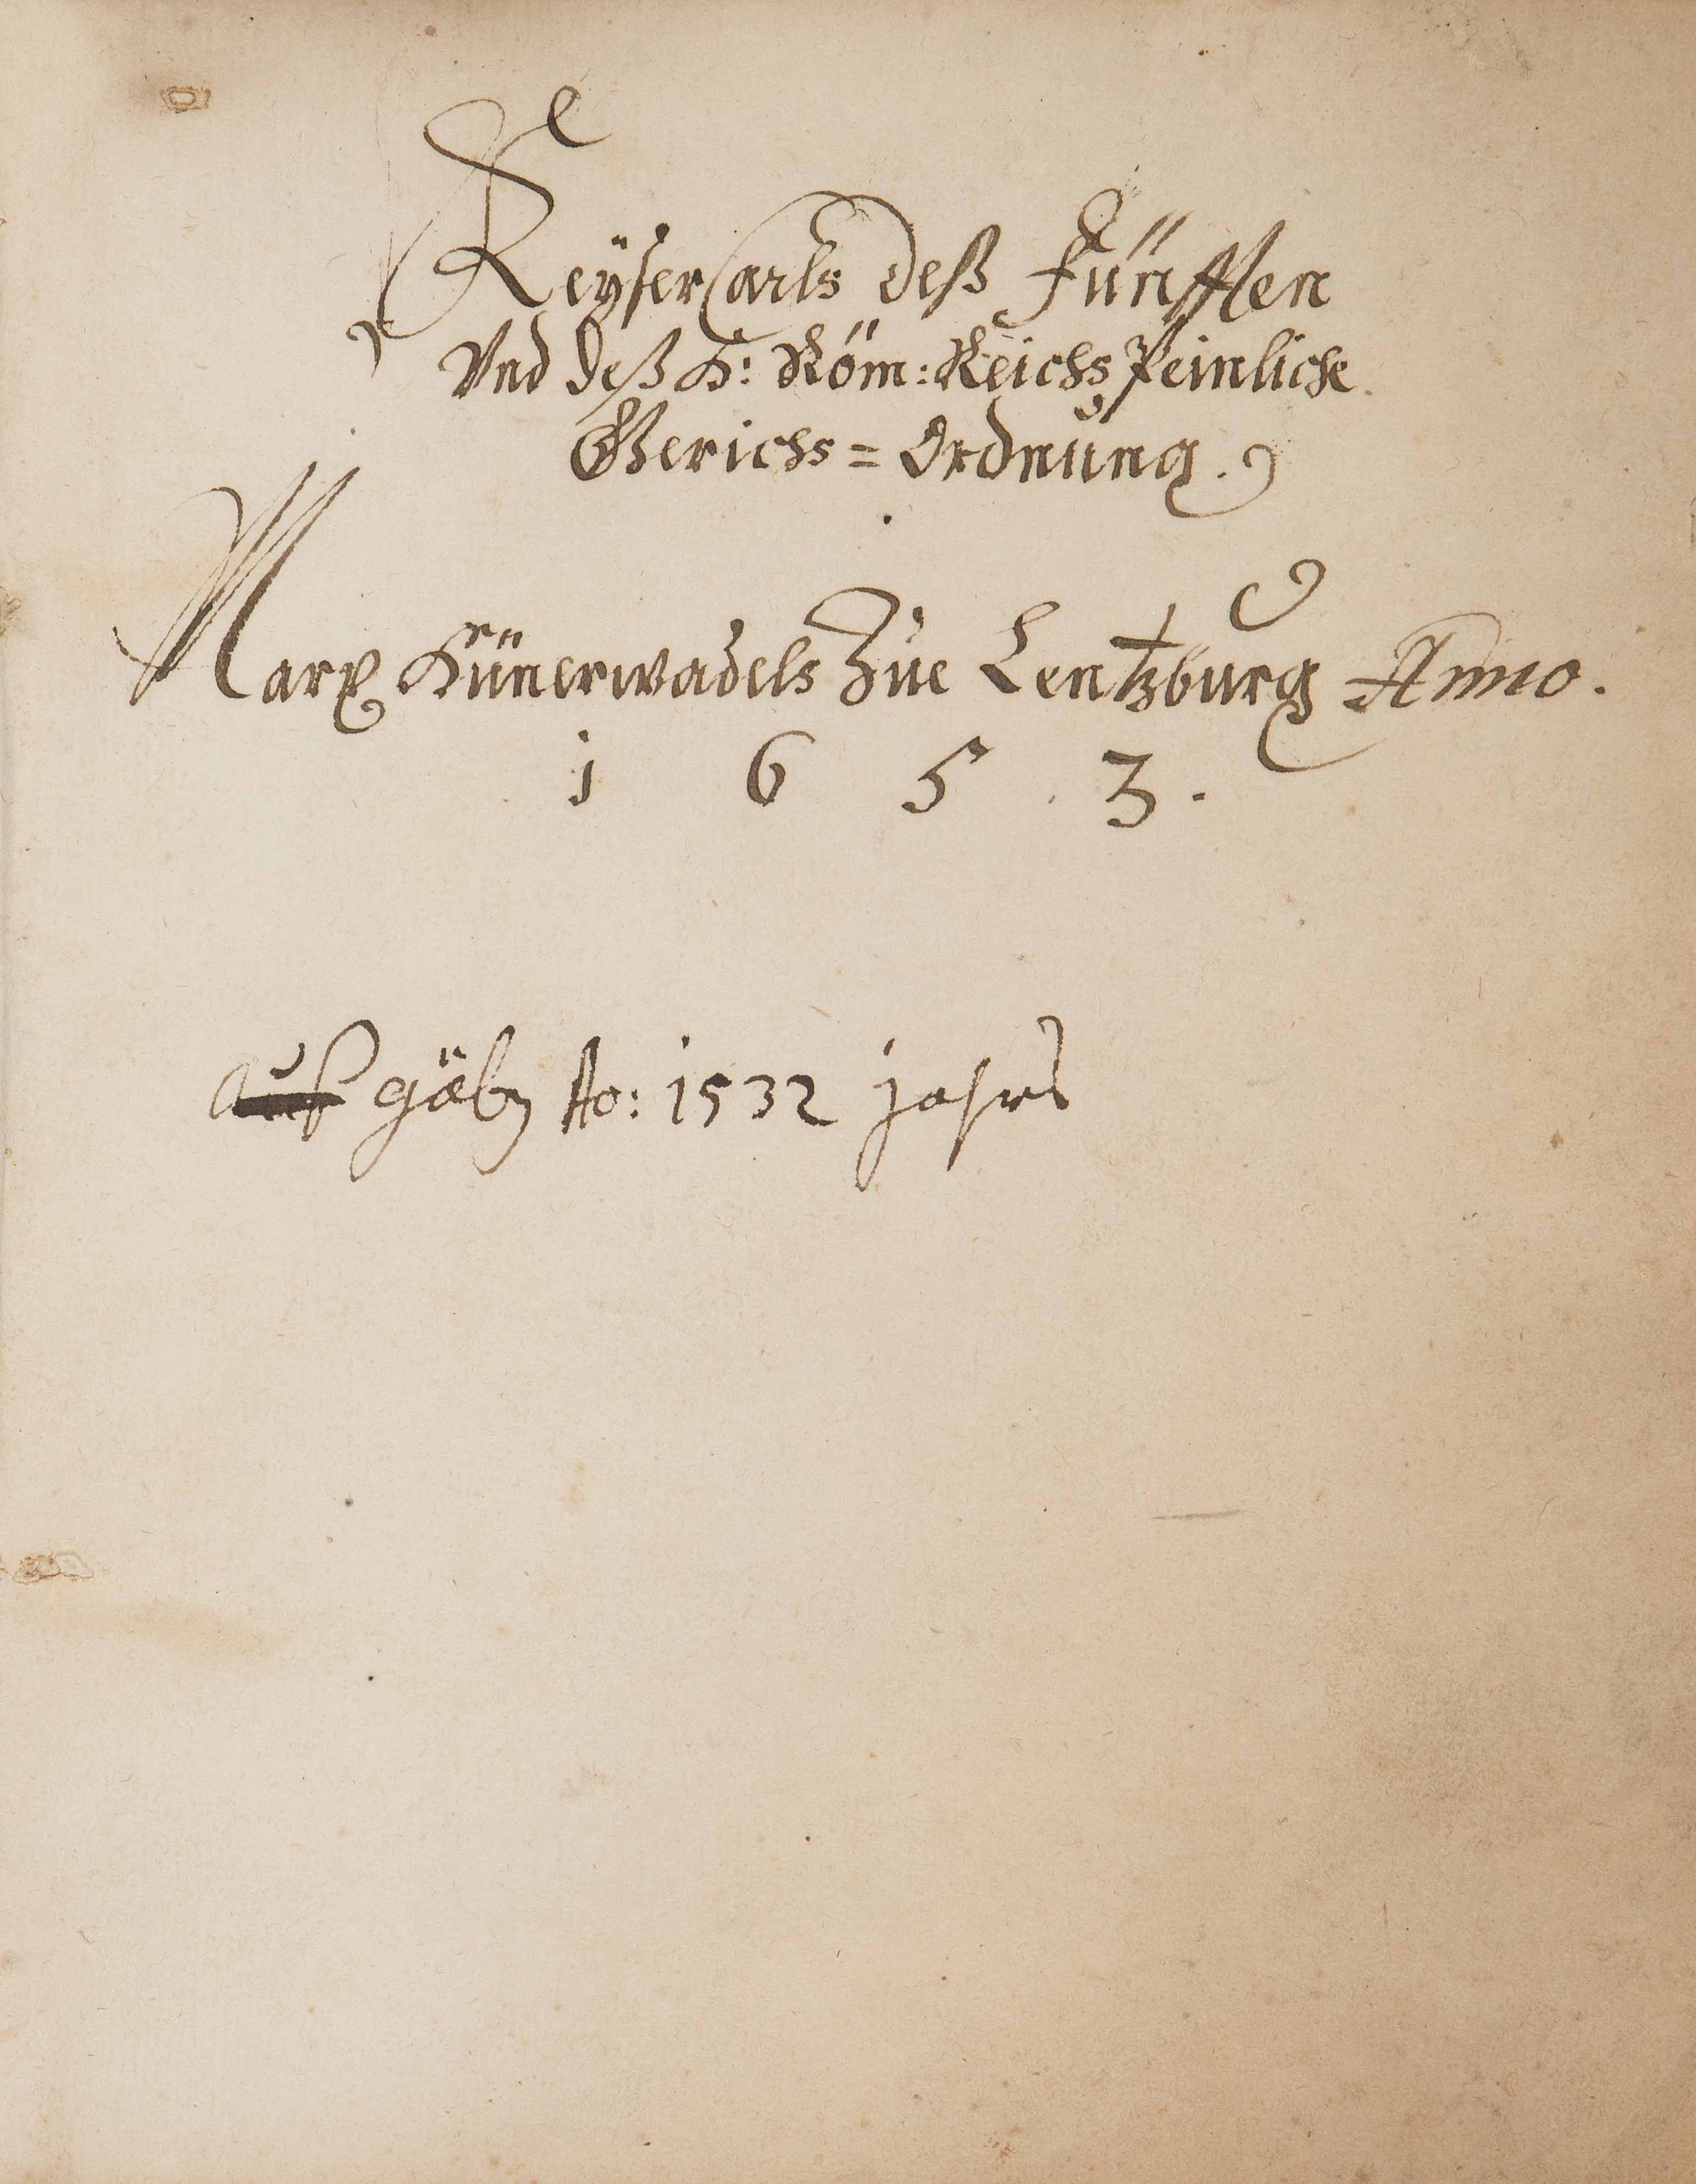 Keyser Carls deß Fünfften
Vnd deß H: Röm: Reichs Peinliche
Gerichs = Ordnung.
Marx Hünerwadels Zue Lentzburg Anno.
1 6 5 3.
auß gäben Ao: 1532 jahrs